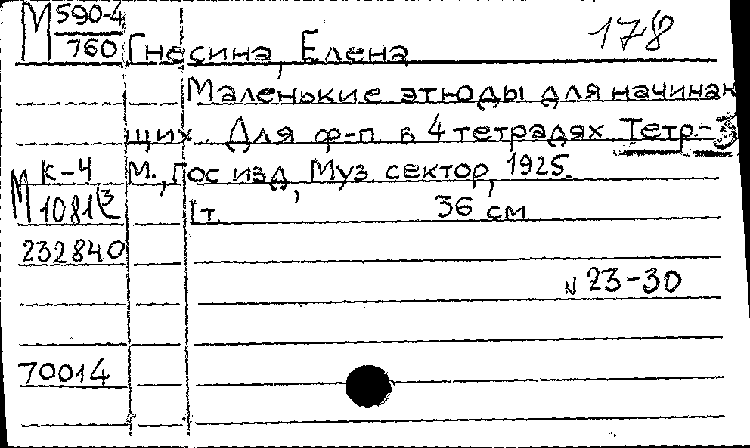 М 590-4/760 Гнесина, Елена 178
Маленькие этюды для начинаю
щих. Для ф-п в 4 тетрадях Тетр.-3
К-4 М., Гос изд, Муз сектор, 1925.
М 1081 36 см
232840
N 23-30
70014